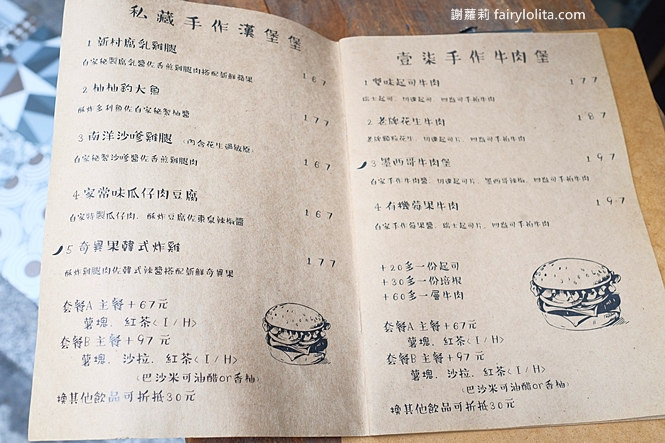 謝蘿莉 fairylolita.com
私藏手作漢堡堡
1 新村腐乳雞腿 167
自家秘製腐乳醬佐香煎雞腿肉搭配新鮮蘋果
2 柚柚釣大魚 177
酥炸多利魚佐自家秘製柚醬
3 南洋沙嗲雞腿 (內含花生過敏原) 167
自家秘製沙嗲醬佐香煎雞腿肉
4 家常味瓜仔肉豆腐 167
自家特製瓜仔肉、酥炸豆腐佐東泉辣椒醬
5 奇異果韓式炸雞 177
酥炸雞腿肉佐韓式辣醬搭配新鮮奇異果
套餐A 主餐+67元
薯塊、紅茶(I/H)
套餐B 主餐+97元
薯塊、沙拉、紅茶(I/H)
(巴沙米可油醋or香柚)
換其他飲品可折抵30元
壹柒手作牛肉堡
1 雙味起司牛肉 177
瑞士起司、切達起司、四盎司手拍牛肉
2 老牌花生牛肉 187
老牌顆粒花生、切達起司片、四盎司手拍牛肉
3 墨西哥牛肉堡 197
自家手作牛肉醬、切達起司片、墨西哥辣椒、四盎司手拍牛肉
4 有機莓果牛肉 197
自家手作莓果醬、瑞士起司片、四盎司手拍牛肉
+20多一份起司
+30多一份培根
+60多一層牛肉
套餐A 主餐+67元
薯塊、紅茶(I/H)
套餐B 主餐+97元
薯塊、沙拉、紅茶(I/H)
(巴沙米可油醋or香柚)
換其他飲品可折抵30元